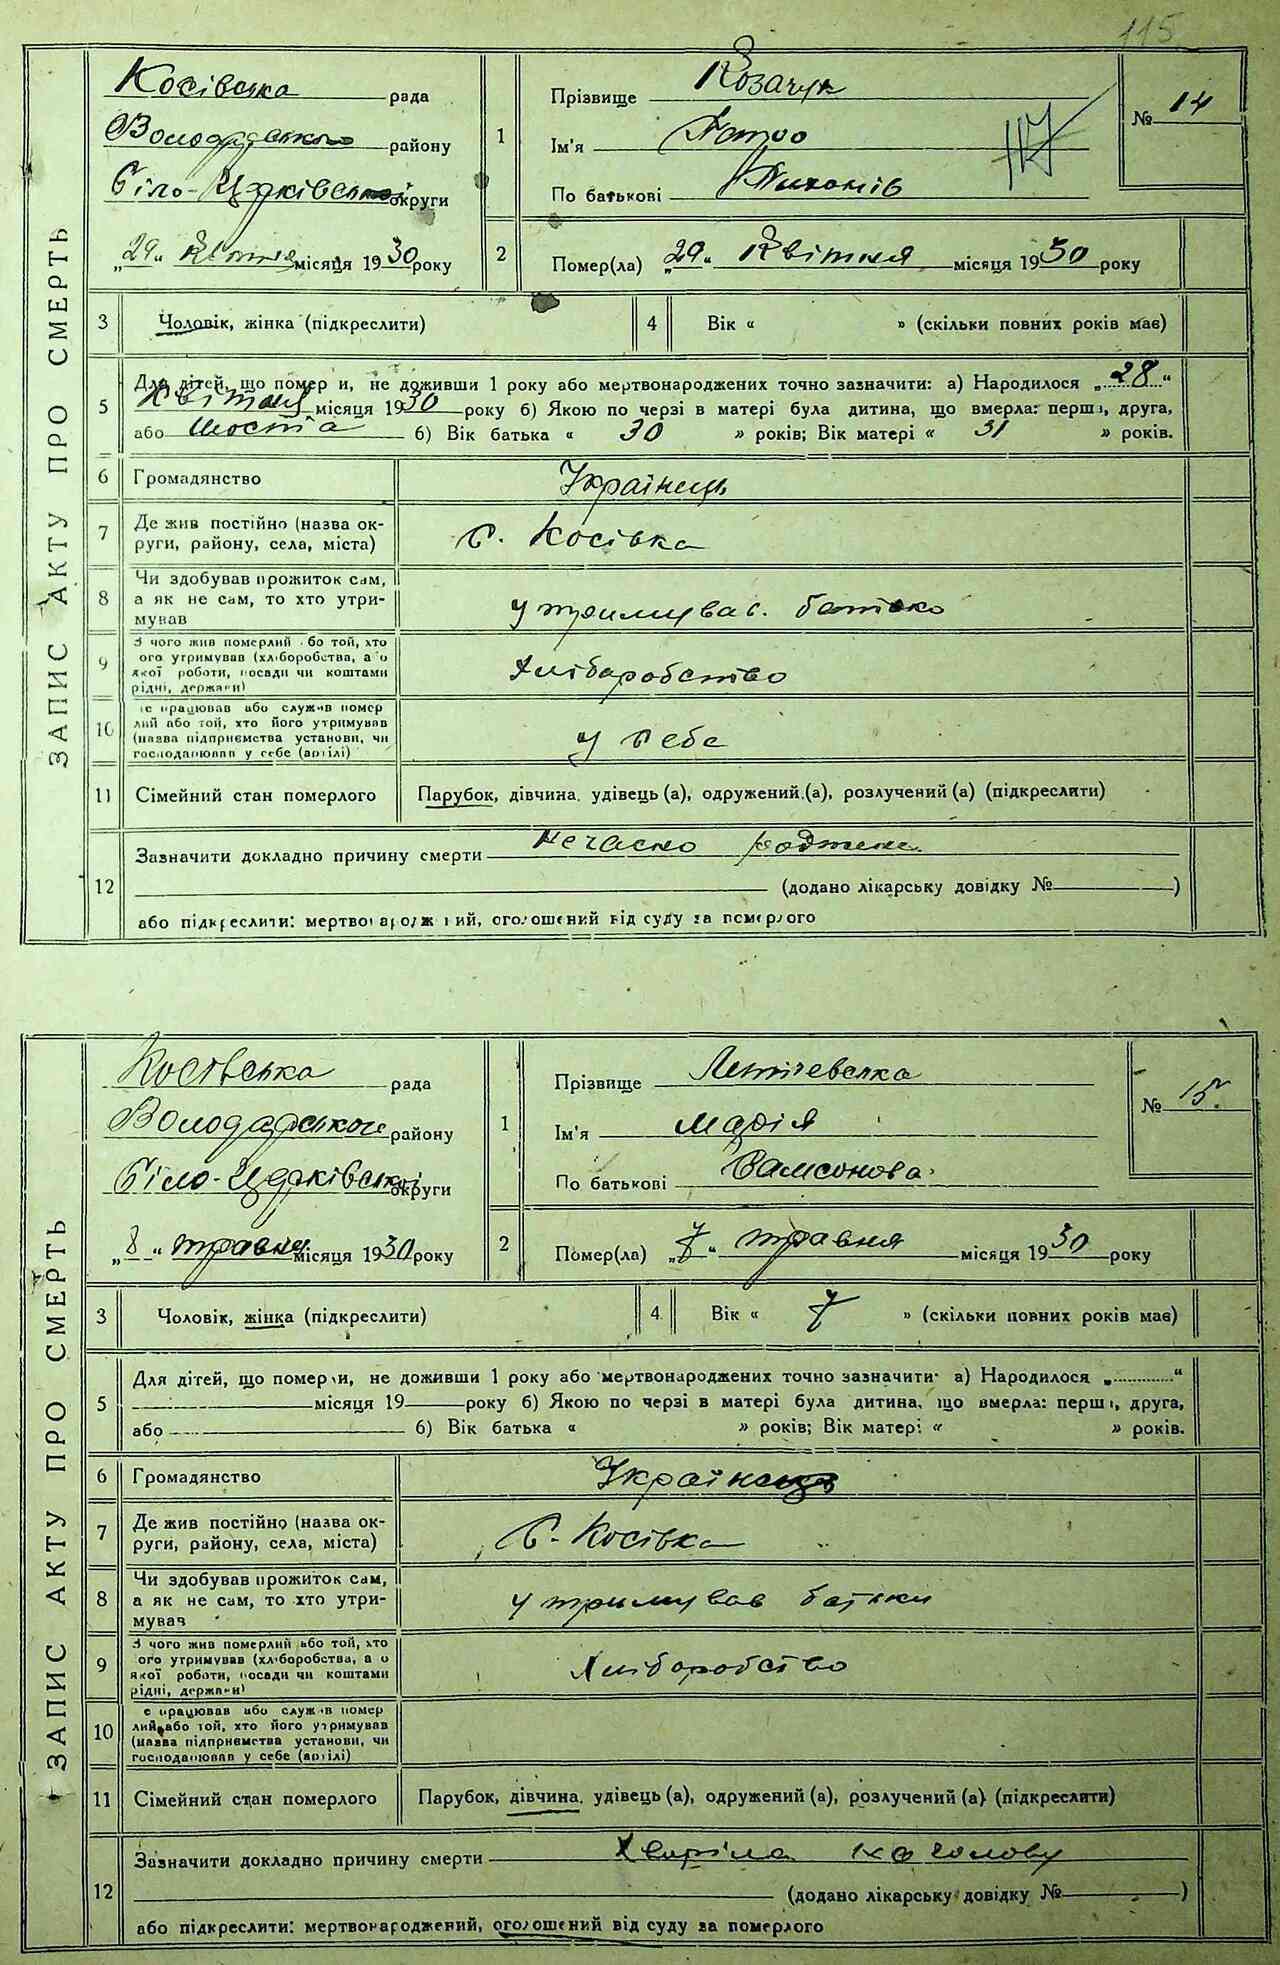 115
ЗАПИС АКТУ ПРО СМЕРТЬ
Косівська рада
Володарського району
Біло-Церківської округи
„29“ Квітня місяця 1930 року
1
Прізвище Козачук
Ім'я Петро
По батькові Тихонів
№ 14
117
2
Помер(ла) „29“ Квітня місяця 1930 року
3
Чоловік, жінка (підкреслити)
4
Вік « » (скільки повних років має)
5
Для дітей, що померли, не доживши 1 року або мертвонароджених точно зазначити: а) Народилося „28“
Квітня місяця 1930 року б) Якою по черзі в матері була дитина, що вмерла: перша, друга,
або шоста б) Вік батька « 30 » років; Вік матері « 31 » років.
6
Громадянство Українець
7
Де жив постійно (назва ок-
руги, району, села, міста)
с. Косівка
8
Чи здобував прожиток сам,
а як не сам, то хто утри-
мував
утримував батько
9
З чого жив померлий або той, хто
його утримував (хліборобства, або
якої роботи, посади чи коштами
рідні, держави)
Хліборобство
10
Де працював або служив помер
лий або той, хто його утримував
(назва підприємства установи, чи
господарював у себе (артілі)
у себе
11
Сімейний стан померлого
Парубок, дівчина, удівець (а), одружений (а), розлучений (а) (підкреслити)
12
Зазначити докладно причину смерти нечасно
(додано лікарську довідку № )
або підкреслити: мертвонароджений, оголошений від суду за померлого
ЗАПИС АКТУ ПРО СМЕРТЬ
Косівська рада
Володарського району
Біло-Церківської округи
„8“ травня місяця 1930 року
1
Прізвище Летичевська
Ім'я Марія
По батькові Самсонова
№ 15
2
Помер(ла) „7“ травня місяця 1930 року
3
Чоловік, жінка (підкреслити)
4
Вік « 7 » (скільки повних років має)
5
Для дітей, що померли, не доживши 1 року або мертвонароджених точно зазначити: а) Народилося „ “
місяця 19 року б) Якою по черзі в матері була дитина, що вмерла: перша, друга,
або б) Вік батька « » років; Вік матері « » років.
6
Громадянство Українець
7
Де жив постійно (назва ок-
руги, району, села, міста)
с. Косівка
8
Чи здобував прожиток сам,
а як не сам, то хто утри-
мував
утримував батьки
9
З чого жив померлий або той, хто
його утримував (хліборобства, або
якої роботи, посади чи коштами
рідні, держави)
Хліборобство
10
Де працював або служив помер
лий або той, хто його утримував
(назва підприємства установи, чи
господарював у себе (артілі)
11
Сімейний стан померлого
Парубок, дівчина, удівець (а), одружений (а), розлучений (а) (підкреслити)
12
Зазначити докладно причину смерти Хворіла на голову
(додано лікарську довідку № )
або підкреслити: мертвонароджений, оголошений від суду за померлого